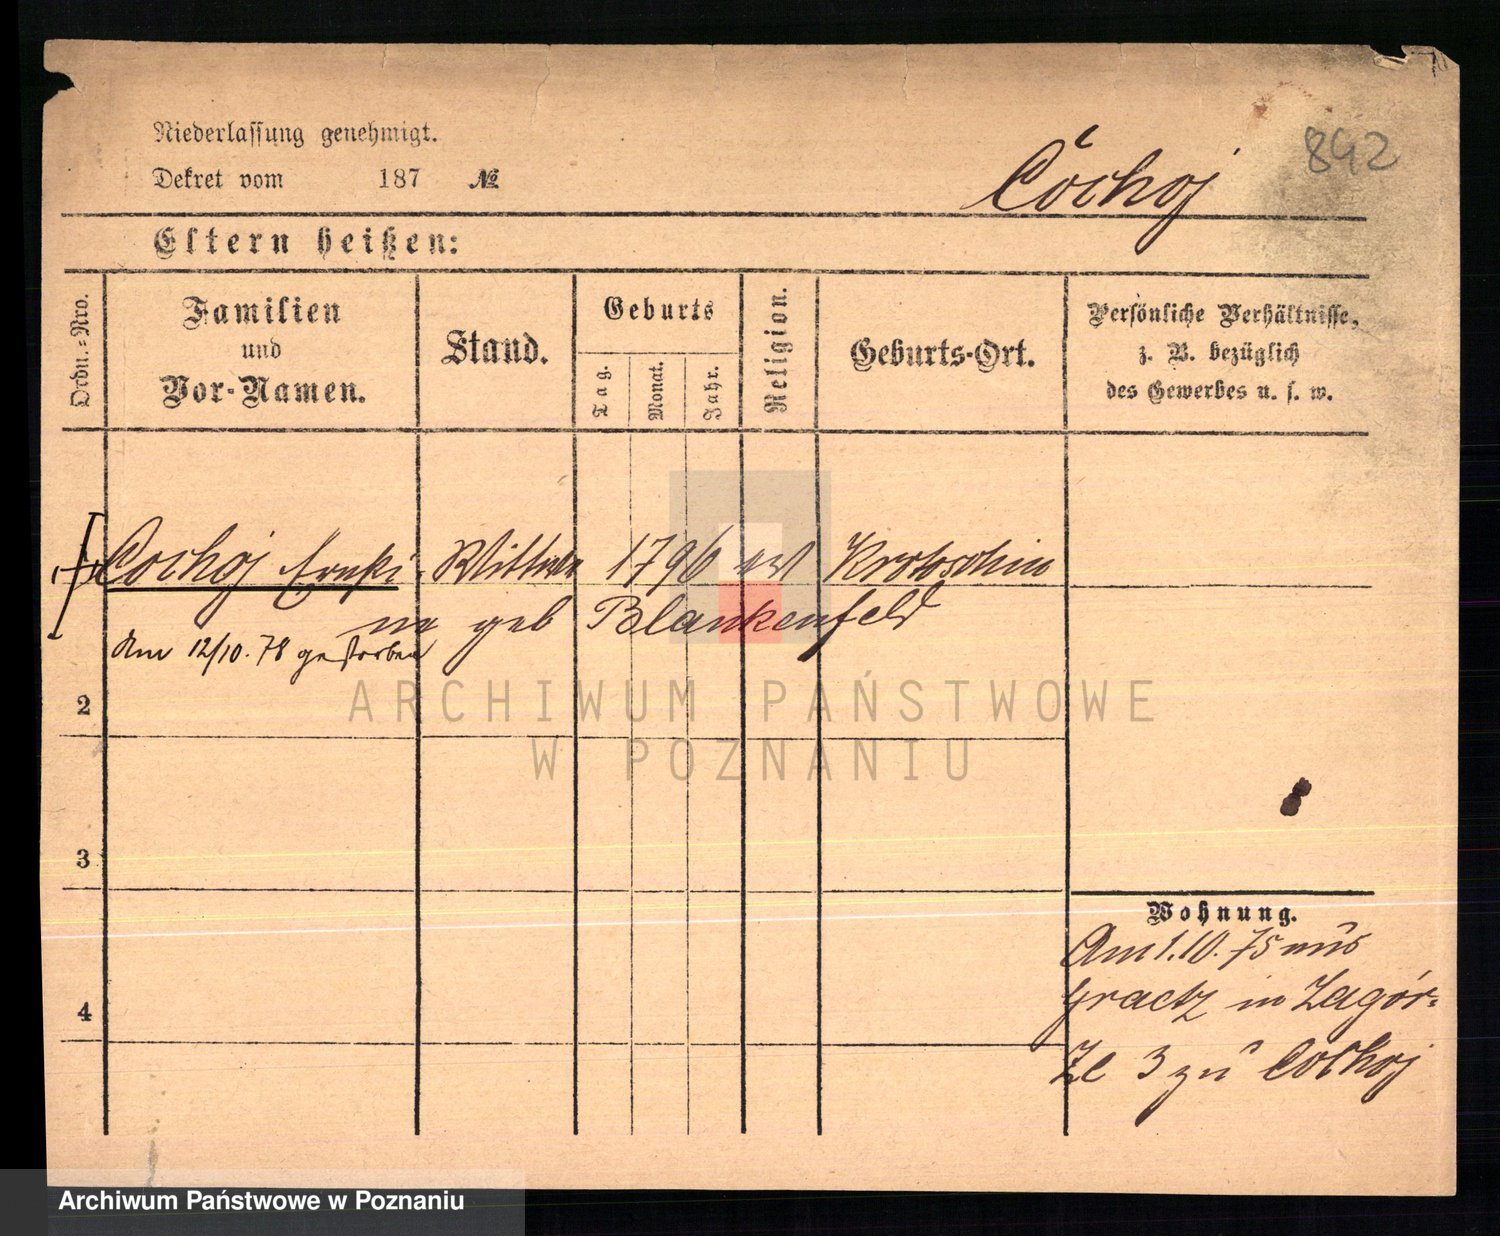 Niederlassung genehmigt.
Dekret vom 187 №
Cochoj
892
Eltern heißen:
Ordn.-Nro.
Familien und Vor-Namen.
Stand.
Geburts
Tag.
Monat.
Jahr.
Religion.
Geburts-Ort.
Persönliche Verhältnisse,
z. B. bezüglich
des Gewerbes u. s. w.
Cochoj Wittwe 1796 Krotoschin
geb Blankenfeld
Am 12/10. 78 gestorben
2
3
4
Wohnung.
Am 1.10.75 aus
Graetz in Zagór-
ze 3 zu Cochoj
ARCHIWUM PAŃSTWOWE
W POZNANIU
Archiwum Państwowe w Poznaniu